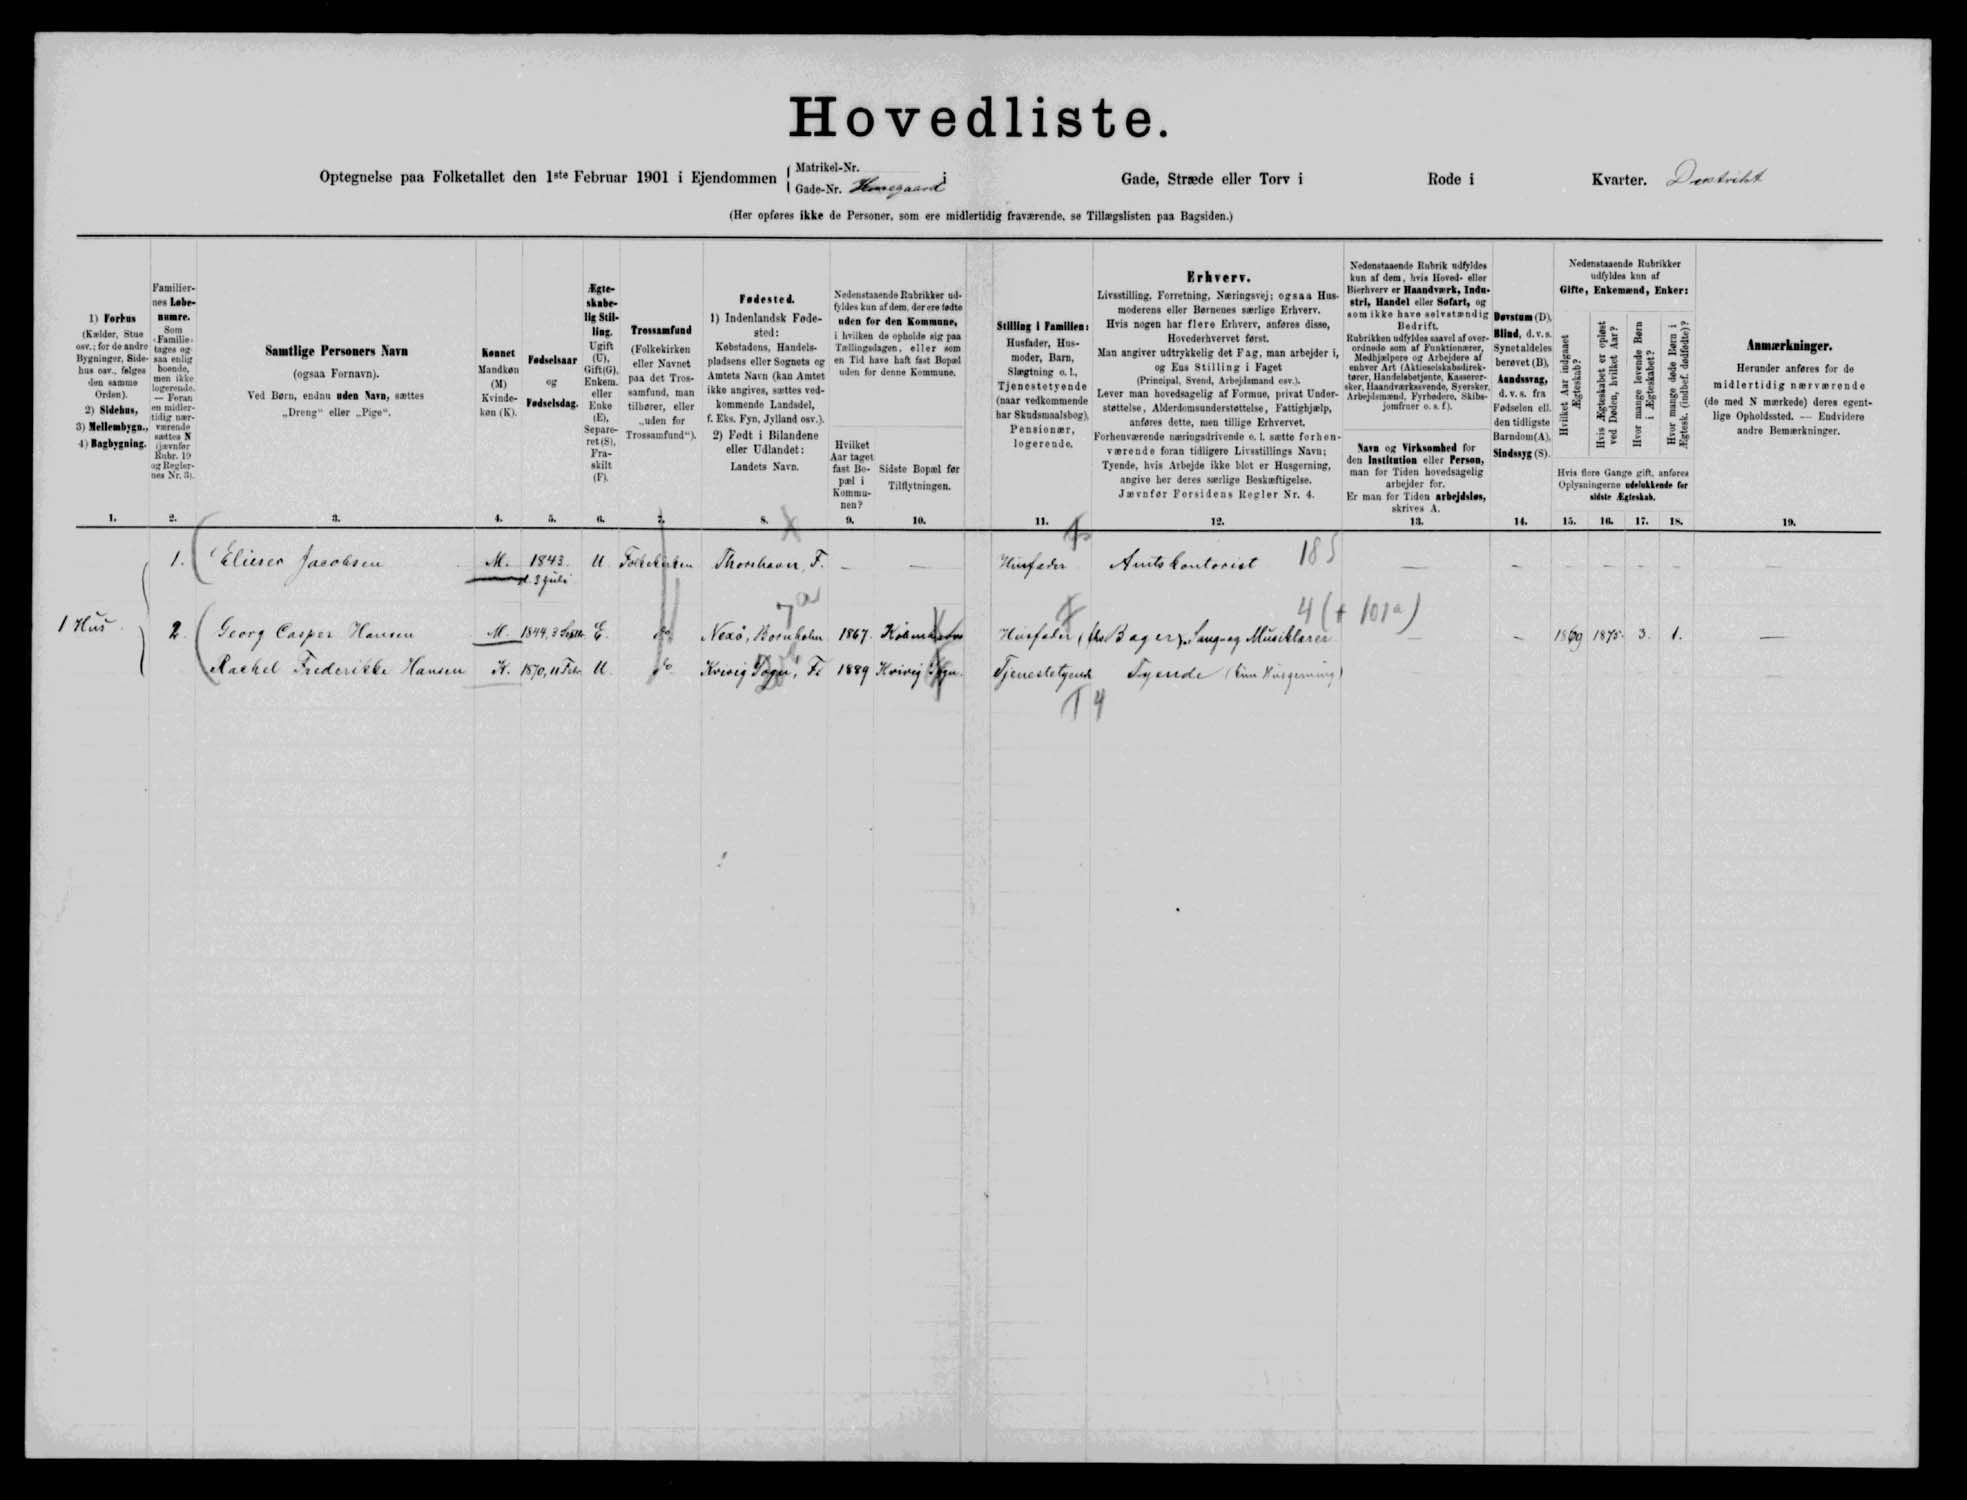 Hovedliste.
Optegnelse paa Folketallet den 1ste Februar 1901 i Ejendommen
Matrikel-Nr.
Gade-Nr. i
Gade, Stræde eller Torv i
Rode i
Kvarter.
(Her opføres ikke de Personer, som ere midlertidig fraværende, se Tillægslisten paa Bagsiden.)
1) Forhus
(Kælder, Stue
osv.; for de andre
Bygninger, Side-
hus osv., følges
den samme
Orden).
2) Sidehus,
3) Mellembygn.,
4) Bagbygning.
Familier-
nes Løbe-
numre.
Som
»Familie«
tages og-
saa enlig
boende,
men ikke
logerende.
— Foran
en midler-
tidig nær-
værende
sættes N
(jævnfør
Rubr. 19
og Regler-
nes Nr. 3).
Samtlige Personers Navn
(ogsaa Fornavn).
Ved Børn, endnu uden Navn, sættes
„Dreng“ eller „Pige“.
Kønnet
Mandkøn
(M)
Kvinde-
køn (K).
Fødselsaar
og
Fødselsdag.
Ægte-
skabe-
lig Stil-
ling.
Ugift
(U),
Gift(G),
Enkem.
eller
Enke
(E),
Separe-
ret (S),
Fra-
skilt
(F).
Trossamfund
(Folkekirken
eller Navnet
paa det Tros-
samfund, man
tilhører, eller
„uden for
Trossamfund“).
Fødested.
1) Indenlandsk Føde-
sted:
Købstadens, Handels-
pladsens eller Sognets og
Amtets Navn (kan Amtet
ikke angives, sættes ved-
kommende Landsdel,
f. Eks. Fyn, Jylland osv.).
2) Født i Bilandene
eller Udlandet:
Landets Navn.
Nedenstaaende Rubrikker ud-
fyldes kun af dem, der ere fødte
uden for den Kommune,
i hvilken de opholde sig paa
Tællingsdagen, eller som
en Tid have haft fast Bopæl
uden for denne Kommune.
Hvilket
Aar taget
fast Bo-
pæl i
Kommu-
nen?
Sidste Bopæl før
Tilflytningen.
Stilling i Familien:
Husfader, Hus-
moder, Barn,
Slægtning o. l.,
Tjenestetyende
(naar vedkommende
har Skudsmaalsbog),
Pensionær,
logerende.
Erhverv.
Livsstilling, Forretning, Næringsvej; ogsaa Hus-
moderens eller Børnenes særlige Erhverv.
Hvis nogen har flere Erhverv, anføres disse,
Hovederhvervet først.
Man angiver udtrykkelig det Fag, man arbejder i,
og Ens Stilling i Faget
(Principal, Svend, Arbejdsmand osv.).
Lever man hovedsagelig af Formue, privat Under-
støttelse, Alderdomsunderstøttelse, Fattighjælp,
anføres dette, men tillige Erhvervet.
Forhenværende næringsdrivende o. l. sætte forhen-
værende foran tidligere Livsstillings Navn;
Tyende, hvis Arbejde ikke blot er Husgerning,
angive her deres særlige Beskæftigelse.
Jævnfør Forsidens Regler Nr. 4.
Nedenstaaende Rubrik udfyldes
kun af dem, hvis Hoved- eller
Bierhverv er Haandværk, Indu-
stri, Handel eller Søfart, og
som ikke have selvstændig
Bedrift.
Rubrikken udfyldes saavel af over-
ordnede som af Funktionærer,
Medhjælpere og Arbejdere af
enhver Art (Aktieselskabsdirek-
tører, Handelsbetjente, Kasserer-
sker, Haandværkssvende, Syersker,
Arbejdsmænd, Fyrbødere, Skibs-
jomfruer o. s. f.).
Navn og Virksomhed for
den Institution eller Person,
man for Tiden hovedsagelig
arbejder for.
Er man for Tiden arbejdsløs,
skrives A.
Døvstum (D),
Blind, d. v. s.
Synet aldeles
berøvet (B),
Aandssvag,
d. v. s. fra
Fødselen ell.
den tidligste
Barndom (A),
Sindssyg (S).
Nedenstaaende Rubrikker
udfyldes kun af
Gifte, Enkemænd, Enker:
Hvilket Aar indgaaet
Ægteskab?
Hvis Ægteskabet er opløst
ved Døden, hvilket Aar?
Hvor mange levende Børn
i Ægteskabet?
Hvor mange døde Børn i
Ægtesk. (indbef. dødfødte)?
Hvis flere Gange gift, anføres
Oplysningerne udelukkende for
sidste Ægteskab.
Anmærkninger.
Herunder anføres for de
midlertidig nærværende
(de med N mærkede) deres egent-
lige Opholdssted. — Endvidere
andre Bemærkninger.
1. 2. 3. 4. 5. 6. 7. 8. 9. 10. 11. 12. 13. 14. 15. 16. 17. 18. 19.
1. Elieser Jacobsen M. 1843. U. Folkekirken Thorshavn, F. — — Husfader Amtskontorist 185 — — — — — — —
d. 3 Juli
7a
4 (+ 101a)
1 Hus. 2. Georg Casper Hansen M. 1844, 3 Septb. E. do Nexö, Bornholm 1867. Kbhavn Husfader Bager, Sang og Musiklærer — — 1869 1875. 3. 1. —
Rachel Frederikke Hansen K. 1870, 11 Febr. U. do Kvivig Sogn, F. 1889 Kvivig Sogn. Tjenestetyende Tyende (kun Husgerning)
T 4